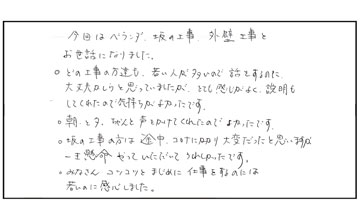 今回はベランダ、坂の工事、外壁工事と
お世話になりました。
○どの工事の方達も、若い人が多いので 話をするのに、
大丈夫かしらと思っていましたが、とても感じがよく、説明も
してくれたので気持ちがよかったです。
○朝、と夕、ちゃんと声をかけてくれたのでよかったです。
○坂の工事の方は 途中、コロナにかかり 大変だったと思いますが
一生懸命 やっていただいて うれしかったです。
○みなさん コツコツとまじめに 仕事をするのには
若いのに感心しました。